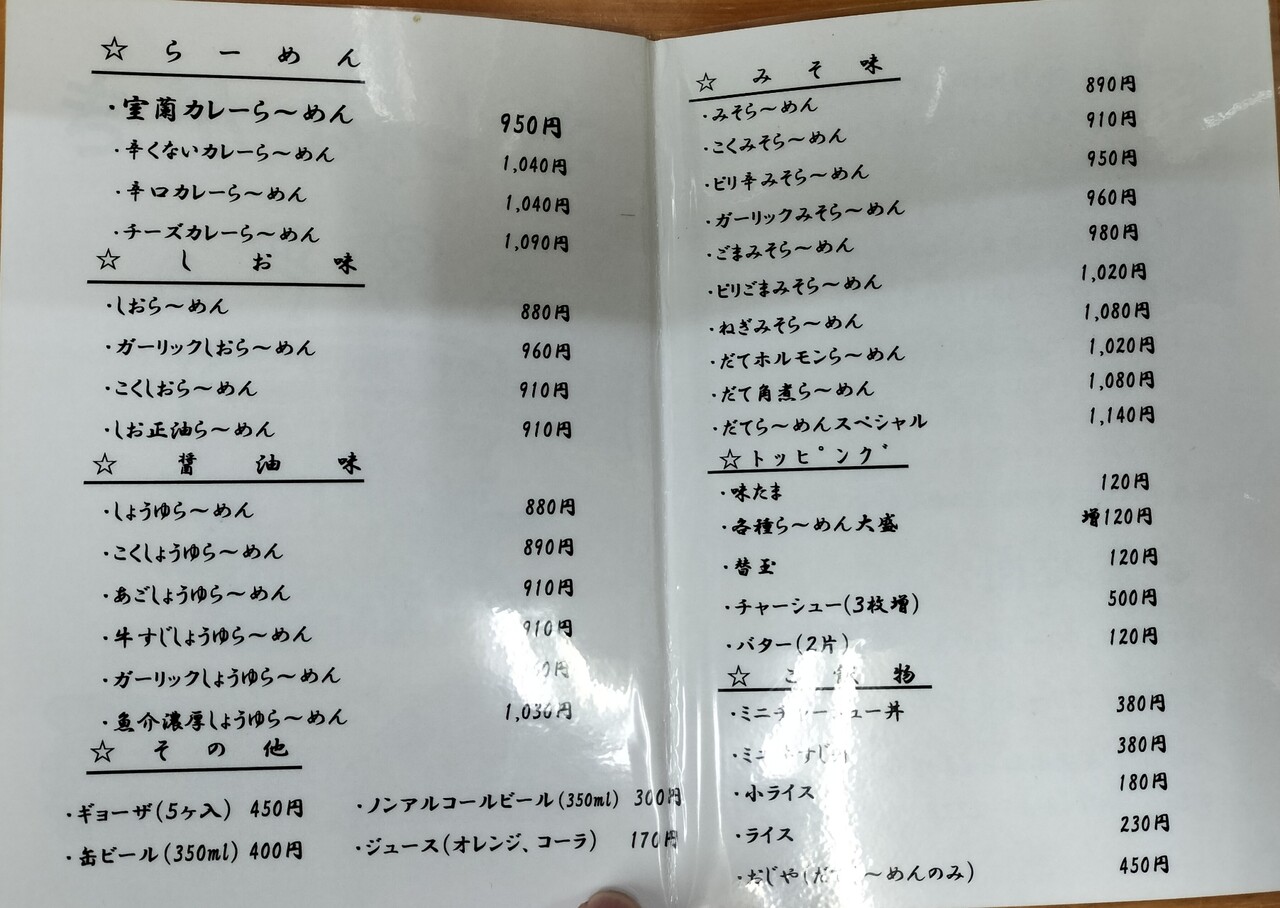 ☆ らーめん
・室蘭カレーら〜めん 950円
・辛くないカレーら〜めん 1,040円
・辛口カレーら〜めん 1,040円
・チーズカレーら〜めん 1,090円
☆ しお味
・しおら〜めん 880円
・ガーリックしおら〜めん 960円
・こくしおら〜めん 910円
・しお正油ら〜めん 910円
☆ 醤油味
・しょうゆら〜めん 880円
・こくしょうゆら〜めん 890円
・あごしょうゆら〜めん 910円
・牛すじしょうゆら〜めん 910円
・ガーリックしょうゆら〜めん
・魚介濃厚しょうゆら〜めん 1,030円
☆ その他
・ギョーザ(5ヶ入) 450円 ・ノンアルコールビール(350ml) 300円
・缶ビール(350ml) 400円 ・ジュース(オレンジ、コーラ) 170円
☆ みそ味
・みそら〜めん 890円
・こくみそら〜めん 910円
・ピリ辛みそら〜めん 950円
・ガーリックみそら〜めん 960円
・ごまみそら〜めん 980円
・ピリごまみそら〜めん 1,020円
・ねぎみそら〜めん 1,080円
・だてホルモンら〜めん 1,020円
・だて角煮ら〜めん 1,080円
・だてら〜めんスペシャル 1,140円
☆トッピング
・味たま 120円
・各種ら〜めん大盛 増120円
・替玉 120円
・チャーシュー(3枚増) 500円
・バター(2片) 120円
☆ ご飯物
・ミニチャーシュー丼 380円
・ミニ 380円
・小ライス 180円
・ライス 230円
・おじや(だてら〜めんのみ) 450円